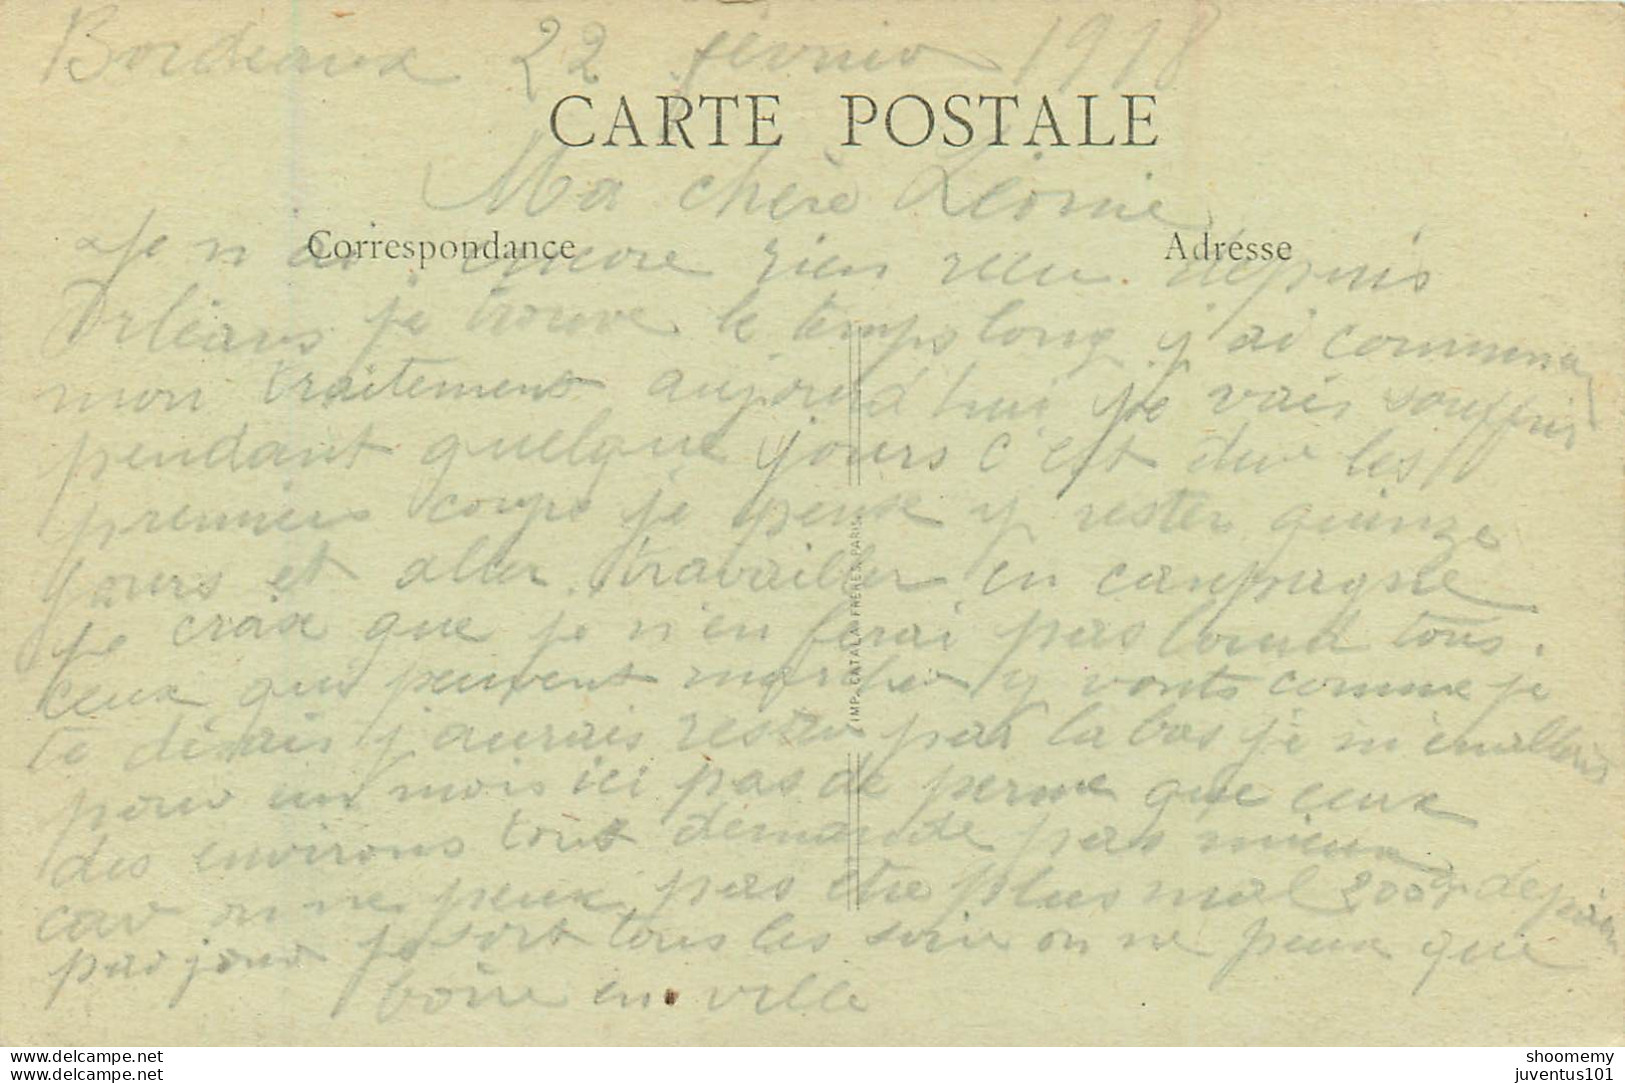 Bordeaux 22 février 1918
CARTE POSTALE
Ma chère Léonie
Correspondance
Adresse
Je n ai encore rien recu depuis
Orléans je trouve le temps long j ai commencé
mon traitement aujourd hui je vais souffrir
pendant quelque jours c est dur les
premiers coups je pense y rester quinze
jours et aller travailler en campagne
je crois que je n'en ferai pas lourd tous
ceux qui peuvent marcher y vonts comme je
te disais j aurais rester par la bas je m'
pour un mois ici pas de perme que ceux
des environs tout demande pas mieux
car on ne peux pas être plus mal 200 gr de pain
par jour je sort tous les soir on ne peux que
boire en ville
IMP. CATALA FRERES, PARIS
www.delcampe.net
www.delcampe.net
shoomemy
juventus101